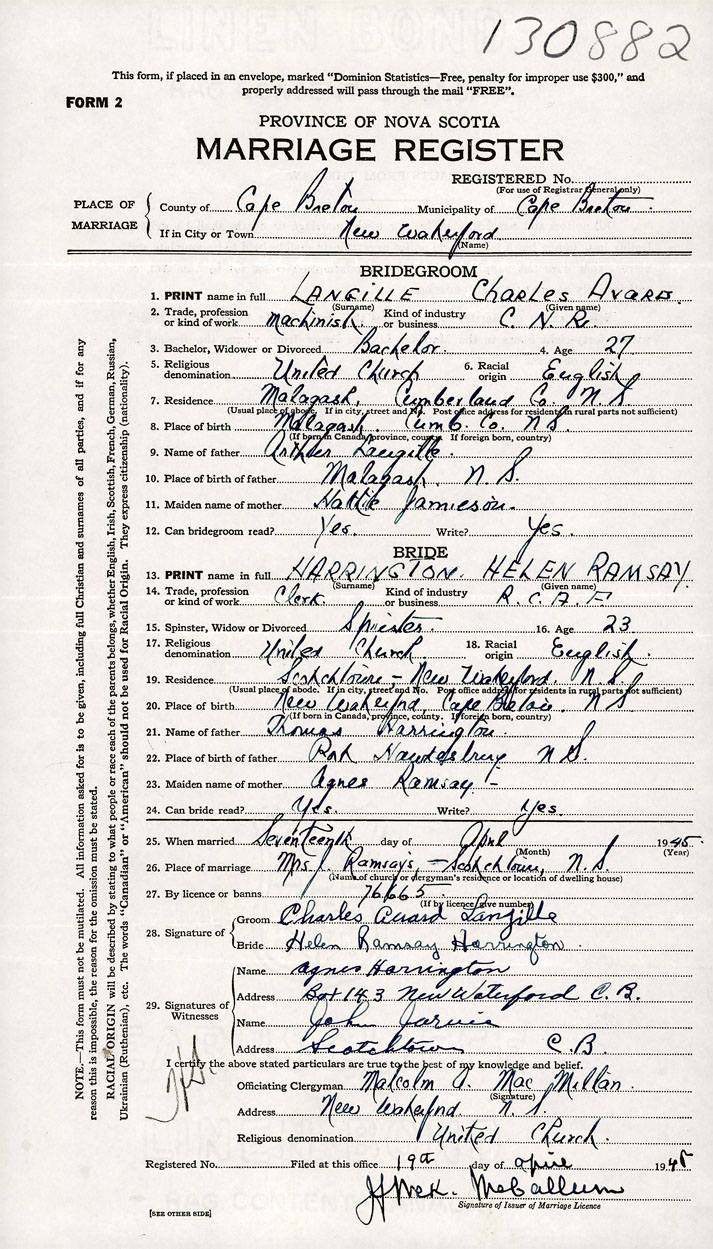 130882
This form, if placed in an envelope, marked "Dominion Statistics—Free, penalty for improper use $300," and
properly addressed will pass through the mail "FREE".
FORM 2
PROVINCE OF NOVA SCOTIA
MARRIAGE REGISTER
REGISTERED No.
(For use of Registrar General only)
PLACE OF MARRIAGE
County of Cape Breton Municipality of Cape Breton.
If in City or Town New Waterford
(Name)
BRIDEGROOM
1. PRINT name in full LANGILLE CHARLES AVARD.
(Surname) (Given name)
2. Trade, profession or kind of work Machinist Kind of industry or business C. N. R.
3. Bachelor, Widower or Divorced Bachelor. 4. Age 27
5. Religious denomination United Church 6. Racial origin English
7. Residence Malagash, Cumberland Co. N S
(Usual place of abode. If in city, street and No. Post office address for residents in rural parts not sufficient)
8. Place of birth Malagash. Cumb. Co. N S.
(If born in Canada, province, county. If foreign born, country)
9. Name of father Arthur Langille.
10. Place of birth of father Malagash. N. S.
11. Maiden name of mother Hattie Jamieson.
12. Can bridegroom read? Yes. Write? Yes.
BRIDE
13. PRINT name in full HARRINGTON. HELEN RAMSAY.
(Surname) (Given name)
14. Trade, profession or kind of work Clerk. Kind of industry or business R. C. A. F
15. Spinster, Widow or Divorced Spinster. 16. Age 23
17. Religious denomination United Church. 18. Racial origin English.
19. Residence Scotchtown – New Waterford. N. S.
(Usual place of abode. If in city, street and No. Post office address for residents in rural parts not sufficient)
20. Place of birth New Waterford, Cape Breton. N S
(If born in Canada, province, county. If foreign born, country)
21. Name of father Thomas Harrington.
22. Place of birth of father Port Hawkesbury N S.
23. Maiden name of mother Agnes Ramsay. –
24. Can bride read? Yes. Write? Yes.
25. When married Seventeenth day of April 1945.
(Month) (Year)
26. Place of marriage Mrs. J. Ramsay's, – Scotchtown, N. S.
(Name of church or clergyman's residence or location of dwelling house)
27. By licence or banns 76665.
(If by licence give number)
28. Signature of
Groom Charles Avard Langille
Bride Helen Ramsay Harrington.
29. Signatures of Witnesses
Name Agnes Harrington
Address Box 143 New Waterford C. B.
Name John Jarvis
Address Scotchtown C. B.
I certify the above stated particulars are true to the best of my knowledge and belief.
Officiating Clergyman Malcolm A. MacMillan.
(Signature)
Address New Waterford N. S.
Religious denomination United Church.
Registered No. Filed at this office 19th day of April 1945
McCallum
Signature of Issuer of Marriage Licence
[SEE OTHER SIDE]
NOTE.—This form must not be mutilated. All information asked for is to be given, including full Christian and surnames of all parties, and if for any
reason this is impossible, the reason for the omission must be stated.
RACIAL ORIGIN will be described by stating to what people or race each of the parents belongs, whether English, Irish, Scottish, French, German, Russian,
Ukrainian (Ruthenian), etc. The words "Canadian" or "American" should not be used for Racial Origin. They express citizenship (nationality).